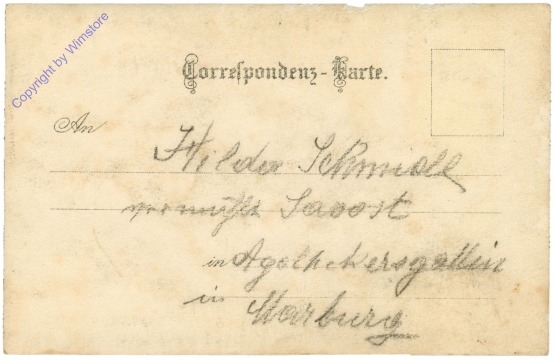 Copyright by Wimstore
Correspondenz-Karte.
An
Hilda Schmidl
in Apothekersgattin
in Marburg